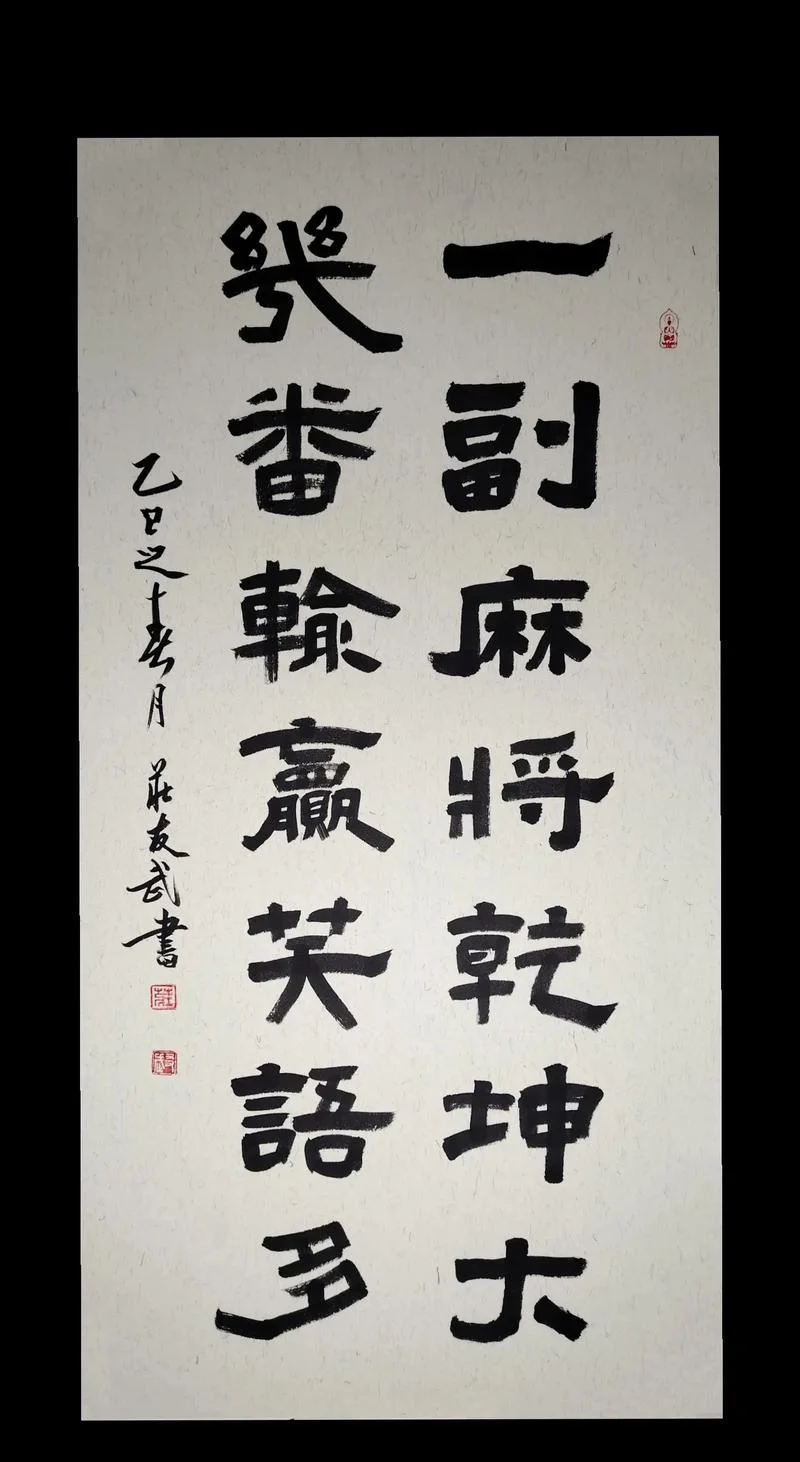 一副麻將乾坤大
幾番輸贏笑語多
乙巳之春月 莊友武書